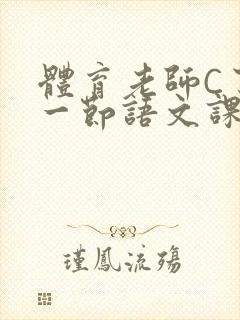 體育老師C
一節語文課
瑾鳳流殤